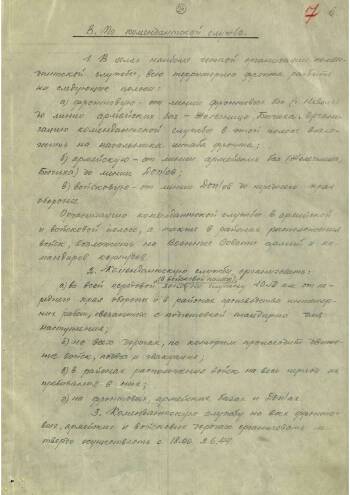 7 6
В. По комендантской службе.
1. В целях наиболее четкой организации комен-
дантской службы, всю территорию фронта разбить
на следующие полосы:
а) фронтовую - от линии фронтовых баз
до линии армейских баз - Железница, Бычиха, органи-
зацию комендантской службы в этой полосе возло-
жить на начальника штаба фронта;
б) армейскую - от линии армейских баз (Железница,
Бычиха) до линии ДОП'ов;
в) войсковую - от линии ДОП'ов до переднего края
обороны.
Организацию комендантской службы в армейской
и войсковой полосе, а также в районах расположения
войск, возложить на Военные Советы армий и ко-
мандиров корпусов.
2. Комендантскую службу организовать:
(в войсковой полосе)
а) во всей на глубину км от пе-
реднего края обороны и в районах производства инженер-
ных работ, связанных с подготовкой плацдарма для
наступления;
б) на всех дорогах, по которым происходит движе-
ние войск, подвоз и эвакуация;
в) в районах расположения войск на весь период их
пребывания в них;
г) на фронтовых, армейских базах и ДОП'ах
3. Комендантскую службу на всех фронто-
вых, армейских и войсковых дорогах организовать и
твердо осуществлять с 18.00 2.6.44.